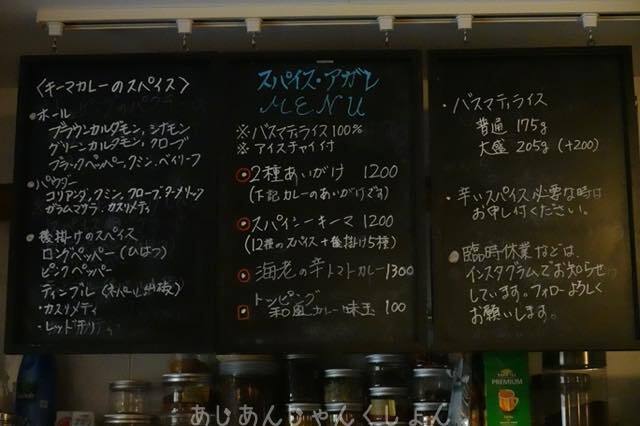 〈キーマカレーのスパイス〉
・ホール
ブラウンカルダモン、シナモン
グリーンカルダモン、クローブ
ブラックペッパー、クミン、ベイリーフ
・パウダー
コリアンダ、クミン、クローブ、ターメリック
ガラムマサラ、カスリメティ
・後掛けのスパイス
ロングペッパー(ひはつ)
ピンクペッパー
ティンブル(ネパール山椒)
・カスリメティ
・レッドチリ
スパイス・アガレ
MENU
※バスマティライス100%
※アイスチャイ付
2種あいがけ 1200
(下記カレーのあいがけです)
スパイシーキーマ 1200
(12種のスパイス+後掛け5種)
海老の辛トマトカレー1300
トッピング
和風カレー味玉 100
・バスマティライス
普通 175g
大盛 205g (+200)
・辛いスパイス必要な時は
お申し付ください。
臨時休業などは、
インスタグラムでお知らせ
しています。フォローよろしく
お願いします。
PREMIUM
あじあんじゃんくしょん